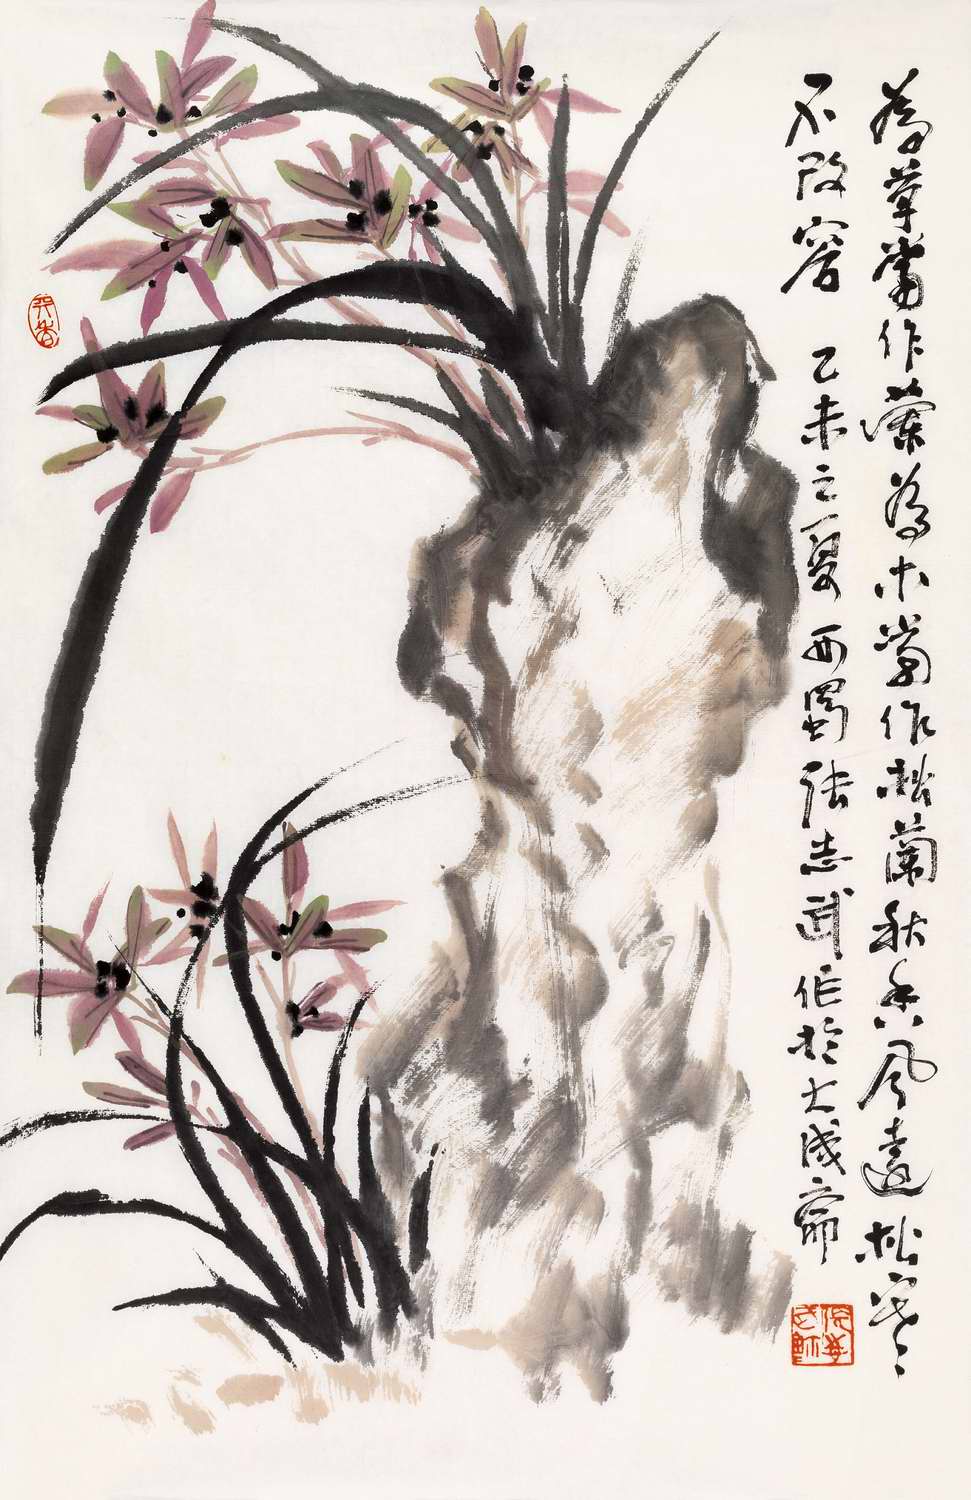 為草當作蘭為木當作松蘭秋香風遠松寒
不改容 乙未之夏西蜀張志武作於大成齋